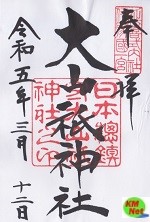 奉拝
大山祇神社
日本總鎮守
神社之印
令和五年三月十二日
KM
Net